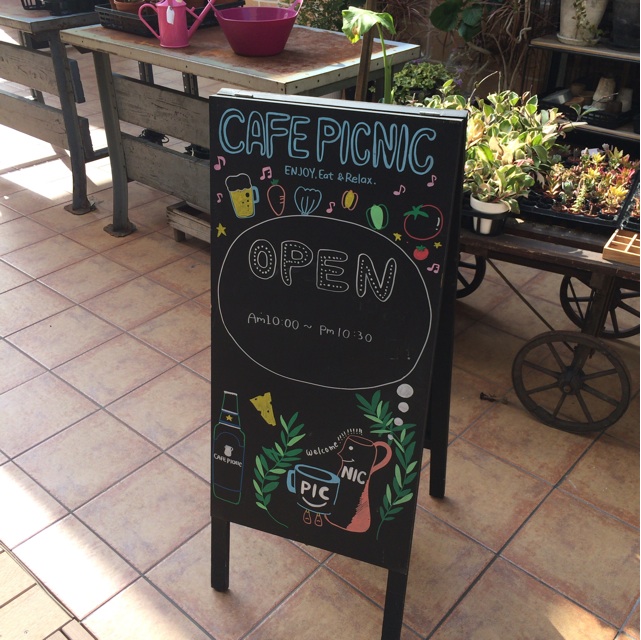 CAFE PICNIC
ENJOY. Eat & Relax.
OPEN
Am10:00 ~ Pm10:30
Welcome!!!!!!!
CAFE PICNIC
PIC
NIC